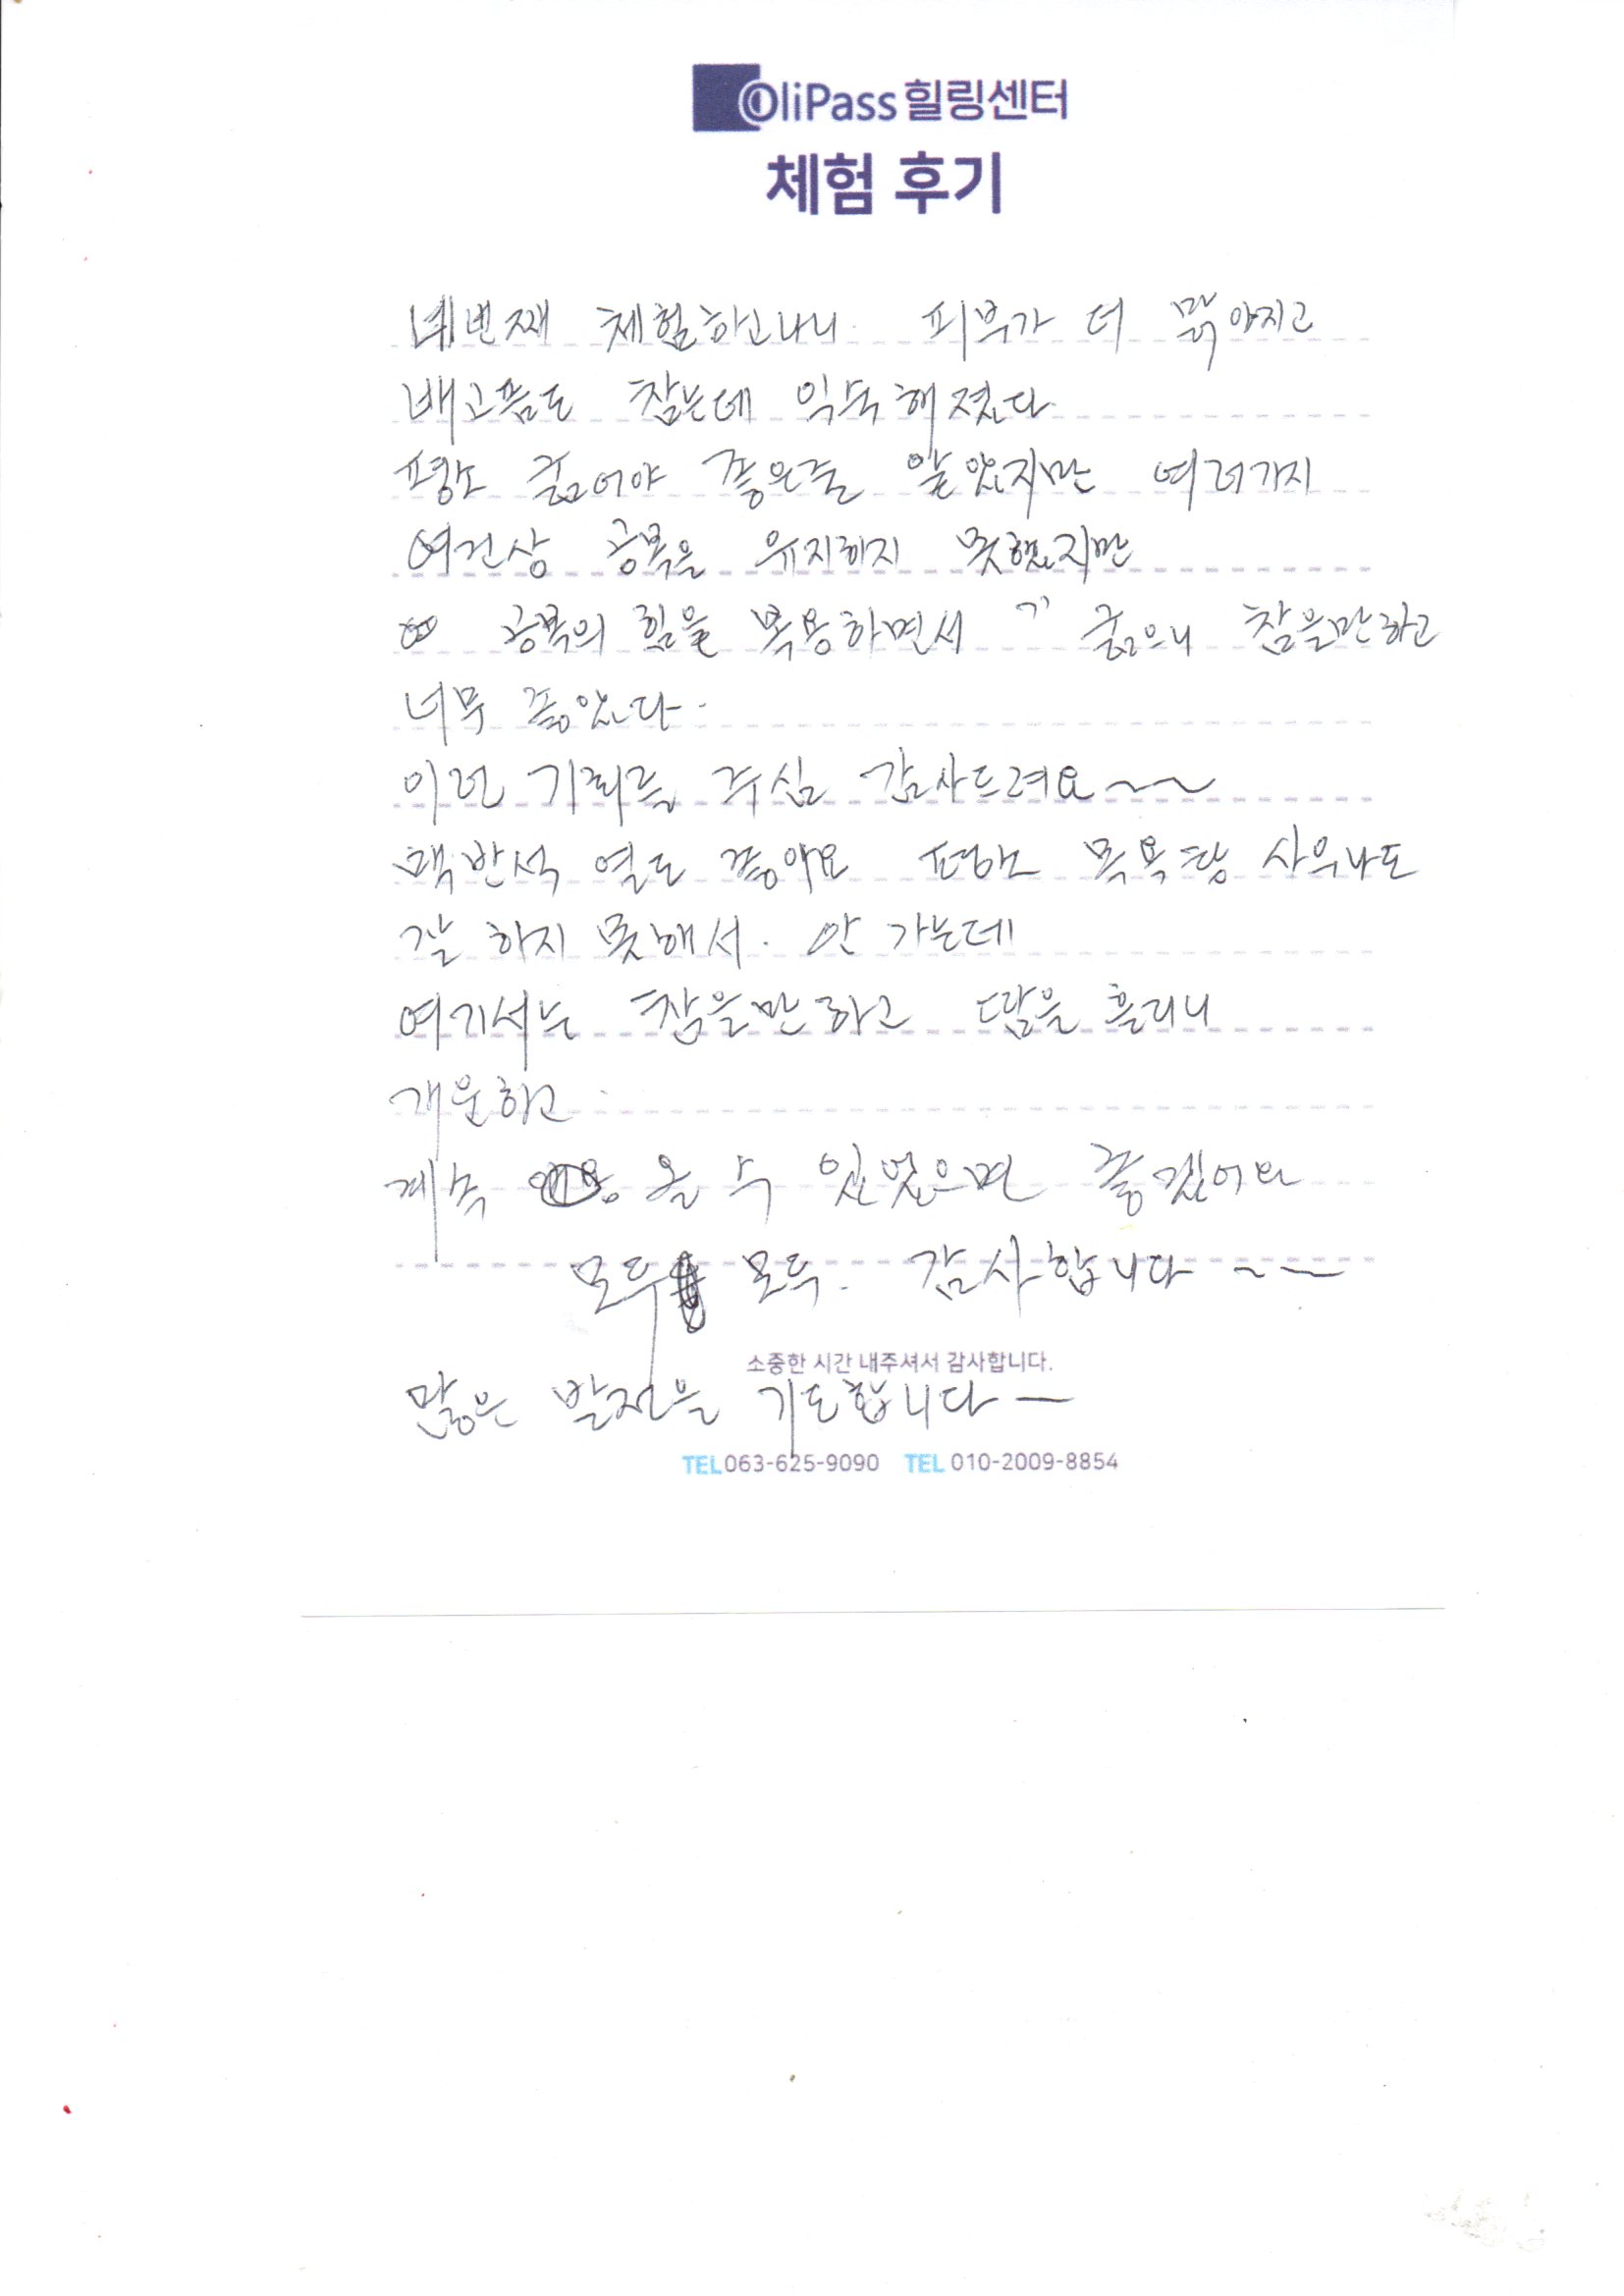 OliPass 힐링센터
체험 후기
네번째 체험하고나니. 피부가 더 맑아지고
배고픔도 참는데 익숙해졌다.
평소 굶어야 좋은줄 알았지만 여러가지
여건상 공복을 유지하지 못했지만
공복의 힘을 복용하면서 굶으니 참을만하고
너무 좋았다.
이런 기회를 주심 감사드려요~~
맥반석 열도 좋아요 평소 목욕탕 사우나도
잘 하지 못해서. 안 가는데
여기서는 참을만하고 땀을 흘리니
개운하고.
계속 올 수 있었으면 좋겠어요
모두 모두. 감사합니다 ~~
소중한 시간 내주셔서 감사합니다.
많은 발전을 기도합니다 ー
TEL 063-625-9090 TEL 010-2009-8854